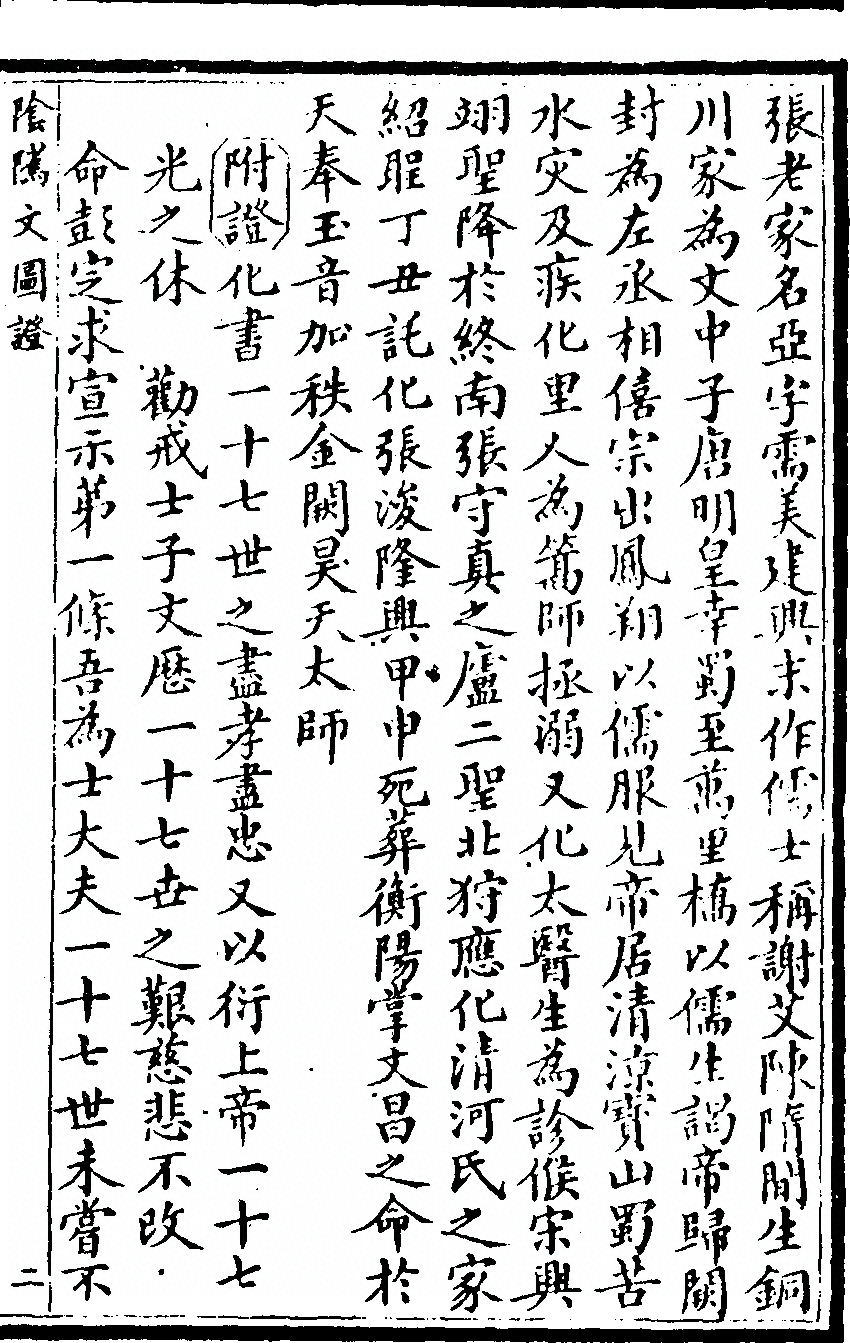 張老家名亞字霈美建興末作儒士稱謝艾陳隋間生銅
川家為文中子唐明皇幸蜀至萬里橋以儒生謁帝歸闕
封為左丞相僖宗出鳳翔以儒服見帝居清涼寶山蜀苦
水灾及疾化里人為篙師拯溺又化太醫生為診候宋興
翊聖降於終南張守真之廬二聖北狩應化清河氏之家
紹聖丁丑託化張浚隆興甲申死葬衡陽掌文昌之命於
天奉玉音加秩金闕昊天太師
附證化書一十七世之盡孝盡忠又以衍上帝一十七
光之休　勸戒士子文歷一十七世之艱慈悲不改
命彭定求宣示苐一條吾為士大夫一十七世未嘗不
陰隲文圖證　二